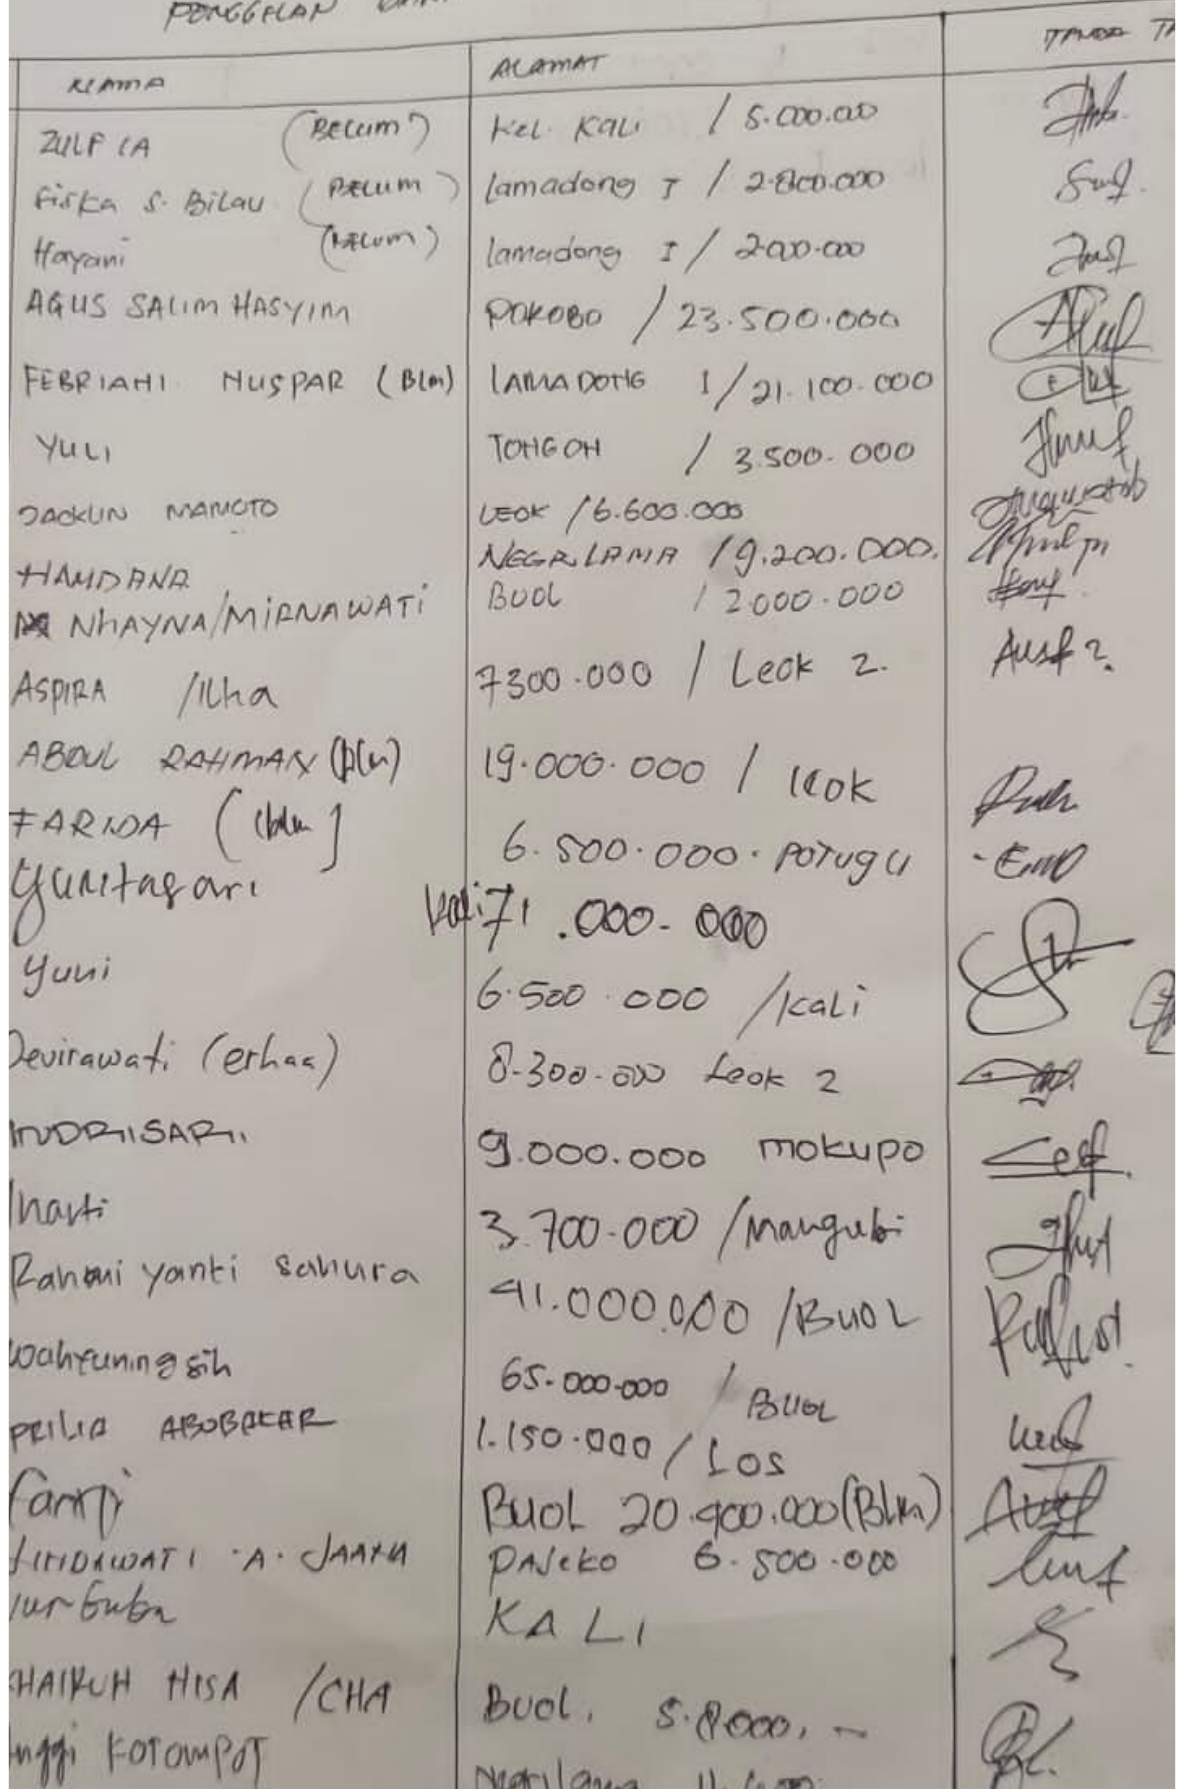 PENGGELAN
NAMA ALAMAT TANDA TA
ZULFIA (BELUM) Kel. KALI / 5.000.000
Fiska S. Bilau (BELUM) lamadong I / 2.800.000
Hayani (BELUM) lamadong I / 2.000.000
AGUS SALIM HASYIM POKOBO / 23.500.000
FEBRIANI NUSPAR (Blm) LAMADONG I / 21.100.000
YULI TONGON / 3.500.000
MAMOTO LEOK / 6.600.000
HAMDANA NEGRI LAMA / 9.200.000.
NHAYNA/MIRNAWATI BUOL / 2.000.000
ASPIRA /Ilha 7300.000 / Leok 2.
ABDUL RAHMAN (blm) 19.000.000 / leok
FARIDA (blm) 6.500.000. POTUGU
Yunitasari kali 71.000.000
Yuni 6.500.000 /kali
Devirawati (erhaa) 8.300.000 Leok 2
INDRISARI. 9.000.000 mokupo
harti 3.700.000 /Mangubi
Rahmi yanti sahura 41.000.000 /BUOL
wahyuningsih 65.000.000 / BUOL
PRILIA ABUBAKAR 1.150.000 / LOS
BUOL 20.900.000 (Blm)
A. JAANA PAJEKO 6.500.000
KALI
HAIRUN NISA /CHA BUOL. 5.8000.-
nggi KOTOMPOT Negrilama